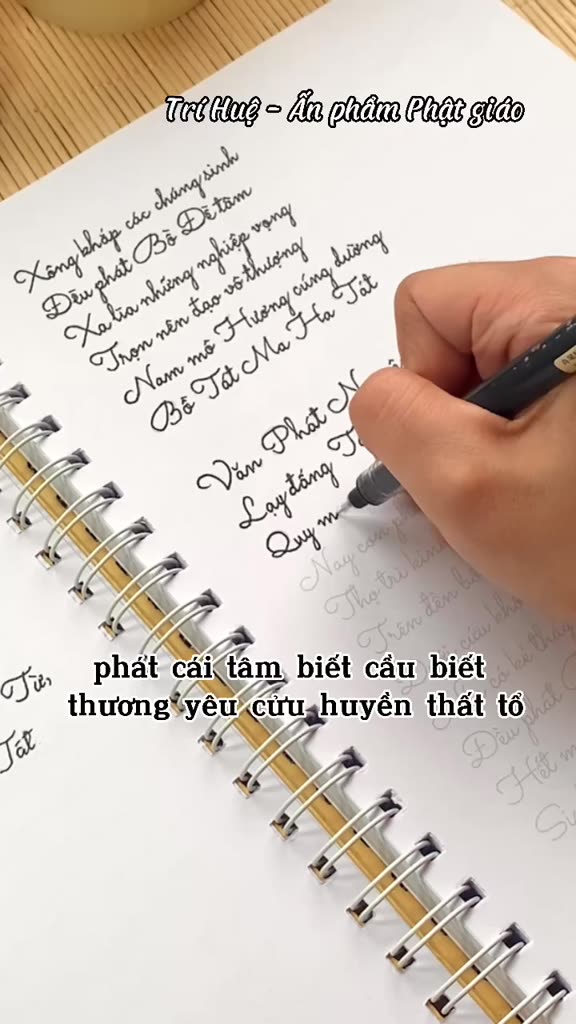 Trí Huệ - Ấn phẩm Phật giáo
Xông khắp các chúng sinh
Đều phát Bồ Đề tâm
Xa lìa những nghiệp vọng
Trọn nên đạo vô thượng
Nam mô Hương cúng dường
Bồ Tát Ma Ha Tát
Văn Phát
Lạy đấng
Quy m
Nay con
Thọ trì kinh
Trên đền
Đều phát
Hết
phát cái tâm biết cầu biết
thương yêu cửu huyền thất tổ
Tát